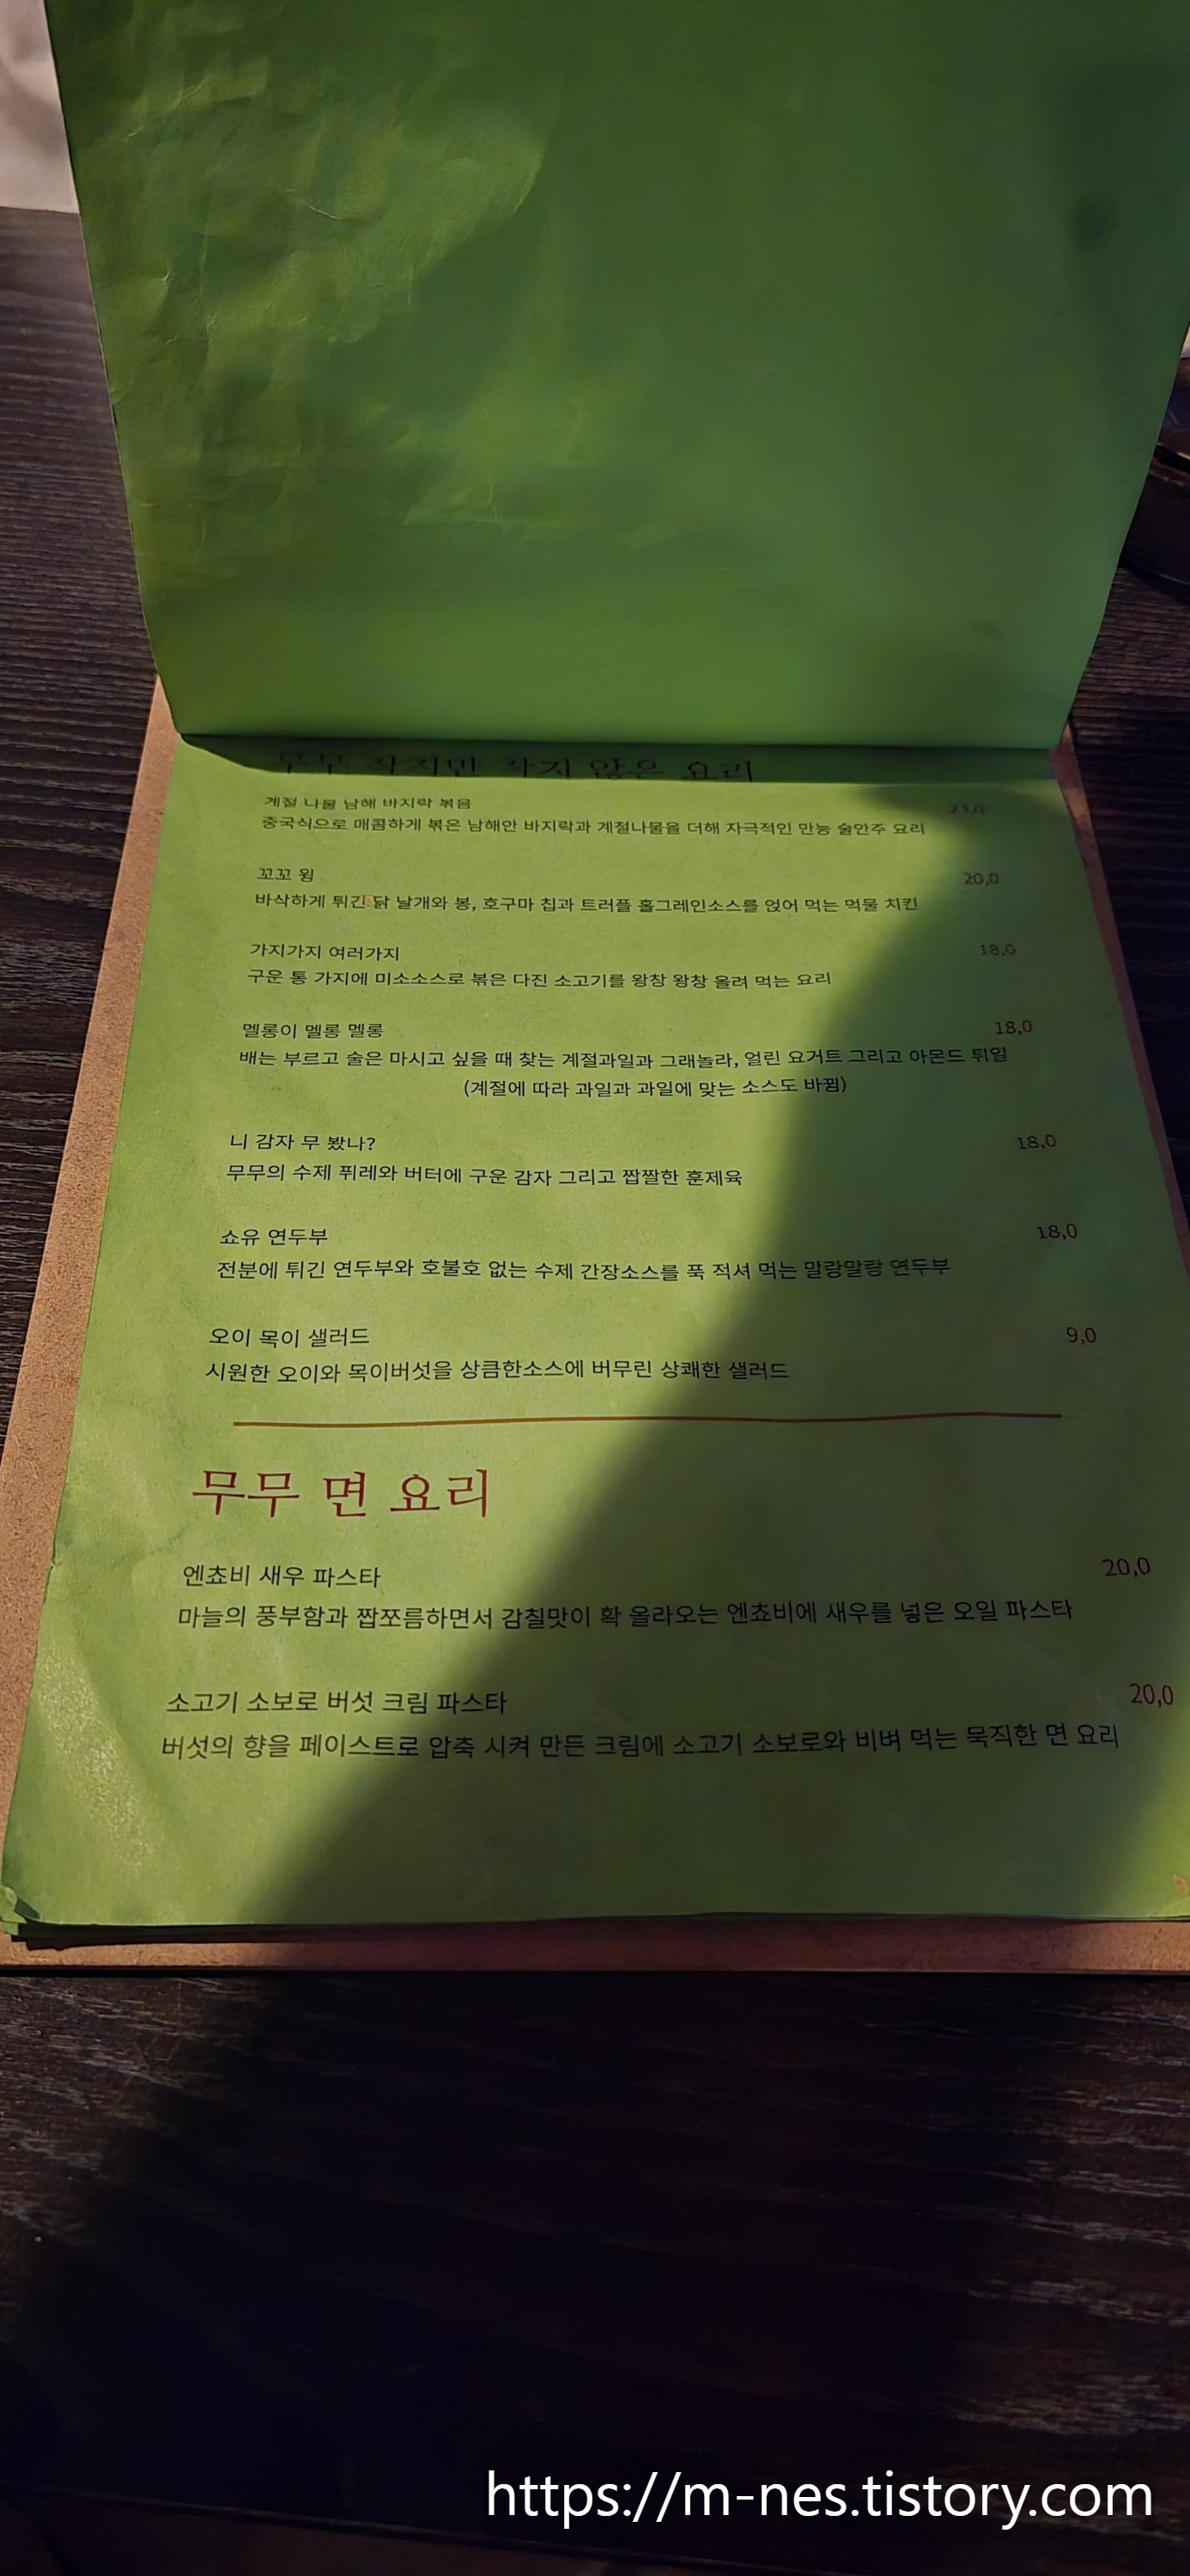 무무 작지만 작지 않은 요리
계절 나물 남해 바지락 볶음
중국식으로 매콤하게 볶은 남해안 바지락과 계절나물을 더해 자극적인 만능 술안주 요리
꼬꼬 윙 20,0
바삭하게 튀긴 닭 날개와 봉, 호구마 칩과 트러플 홀그레인소스를 얹어 먹는 먹물 치킨
가지가지 여러가지 18,0
구운 통 가지에 미소소스로 볶은 다진 소고기를 왕창 왕창 올려 먹는 요리
멜롱이 멜롱 멜롱 18,0
배는 부르고 술은 마시고 싶을 때 찾는 계절과일과 그래놀라, 얼린 요거트 그리고 아몬드 튀일
(계절에 따라 과일과 과일에 맞는 소스도 바뀜)
니 감자 무 봤나? 18,0
무무의 수제 퓌레와 버터에 구운 감자 그리고 짭짤한 훈제육
쇼유 연두부 18,0
전분에 튀긴 연두부와 호불호 없는 수제 간장소스를 푹 적셔 먹는 말랑말랑 연두부
오이 목이 샐러드 9,0
시원한 오이와 목이버섯을 상큼한소스에 버무린 상쾌한 샐러드
무무 면 요리
엔쵸비 새우 파스타 20,0
마늘의 풍부함과 짭쪼름하면서 감칠맛이 확 올라오는 엔쵸비에 새우를 넣은 오일 파스타
소고기 소보로 버섯 크림 파스타 20,0
버섯의 향을 페이스트로 압축 시켜 만든 크림에 소고기 소보로와 비벼 먹는 묵직한 면 요리
https://m-nes.tistory.com